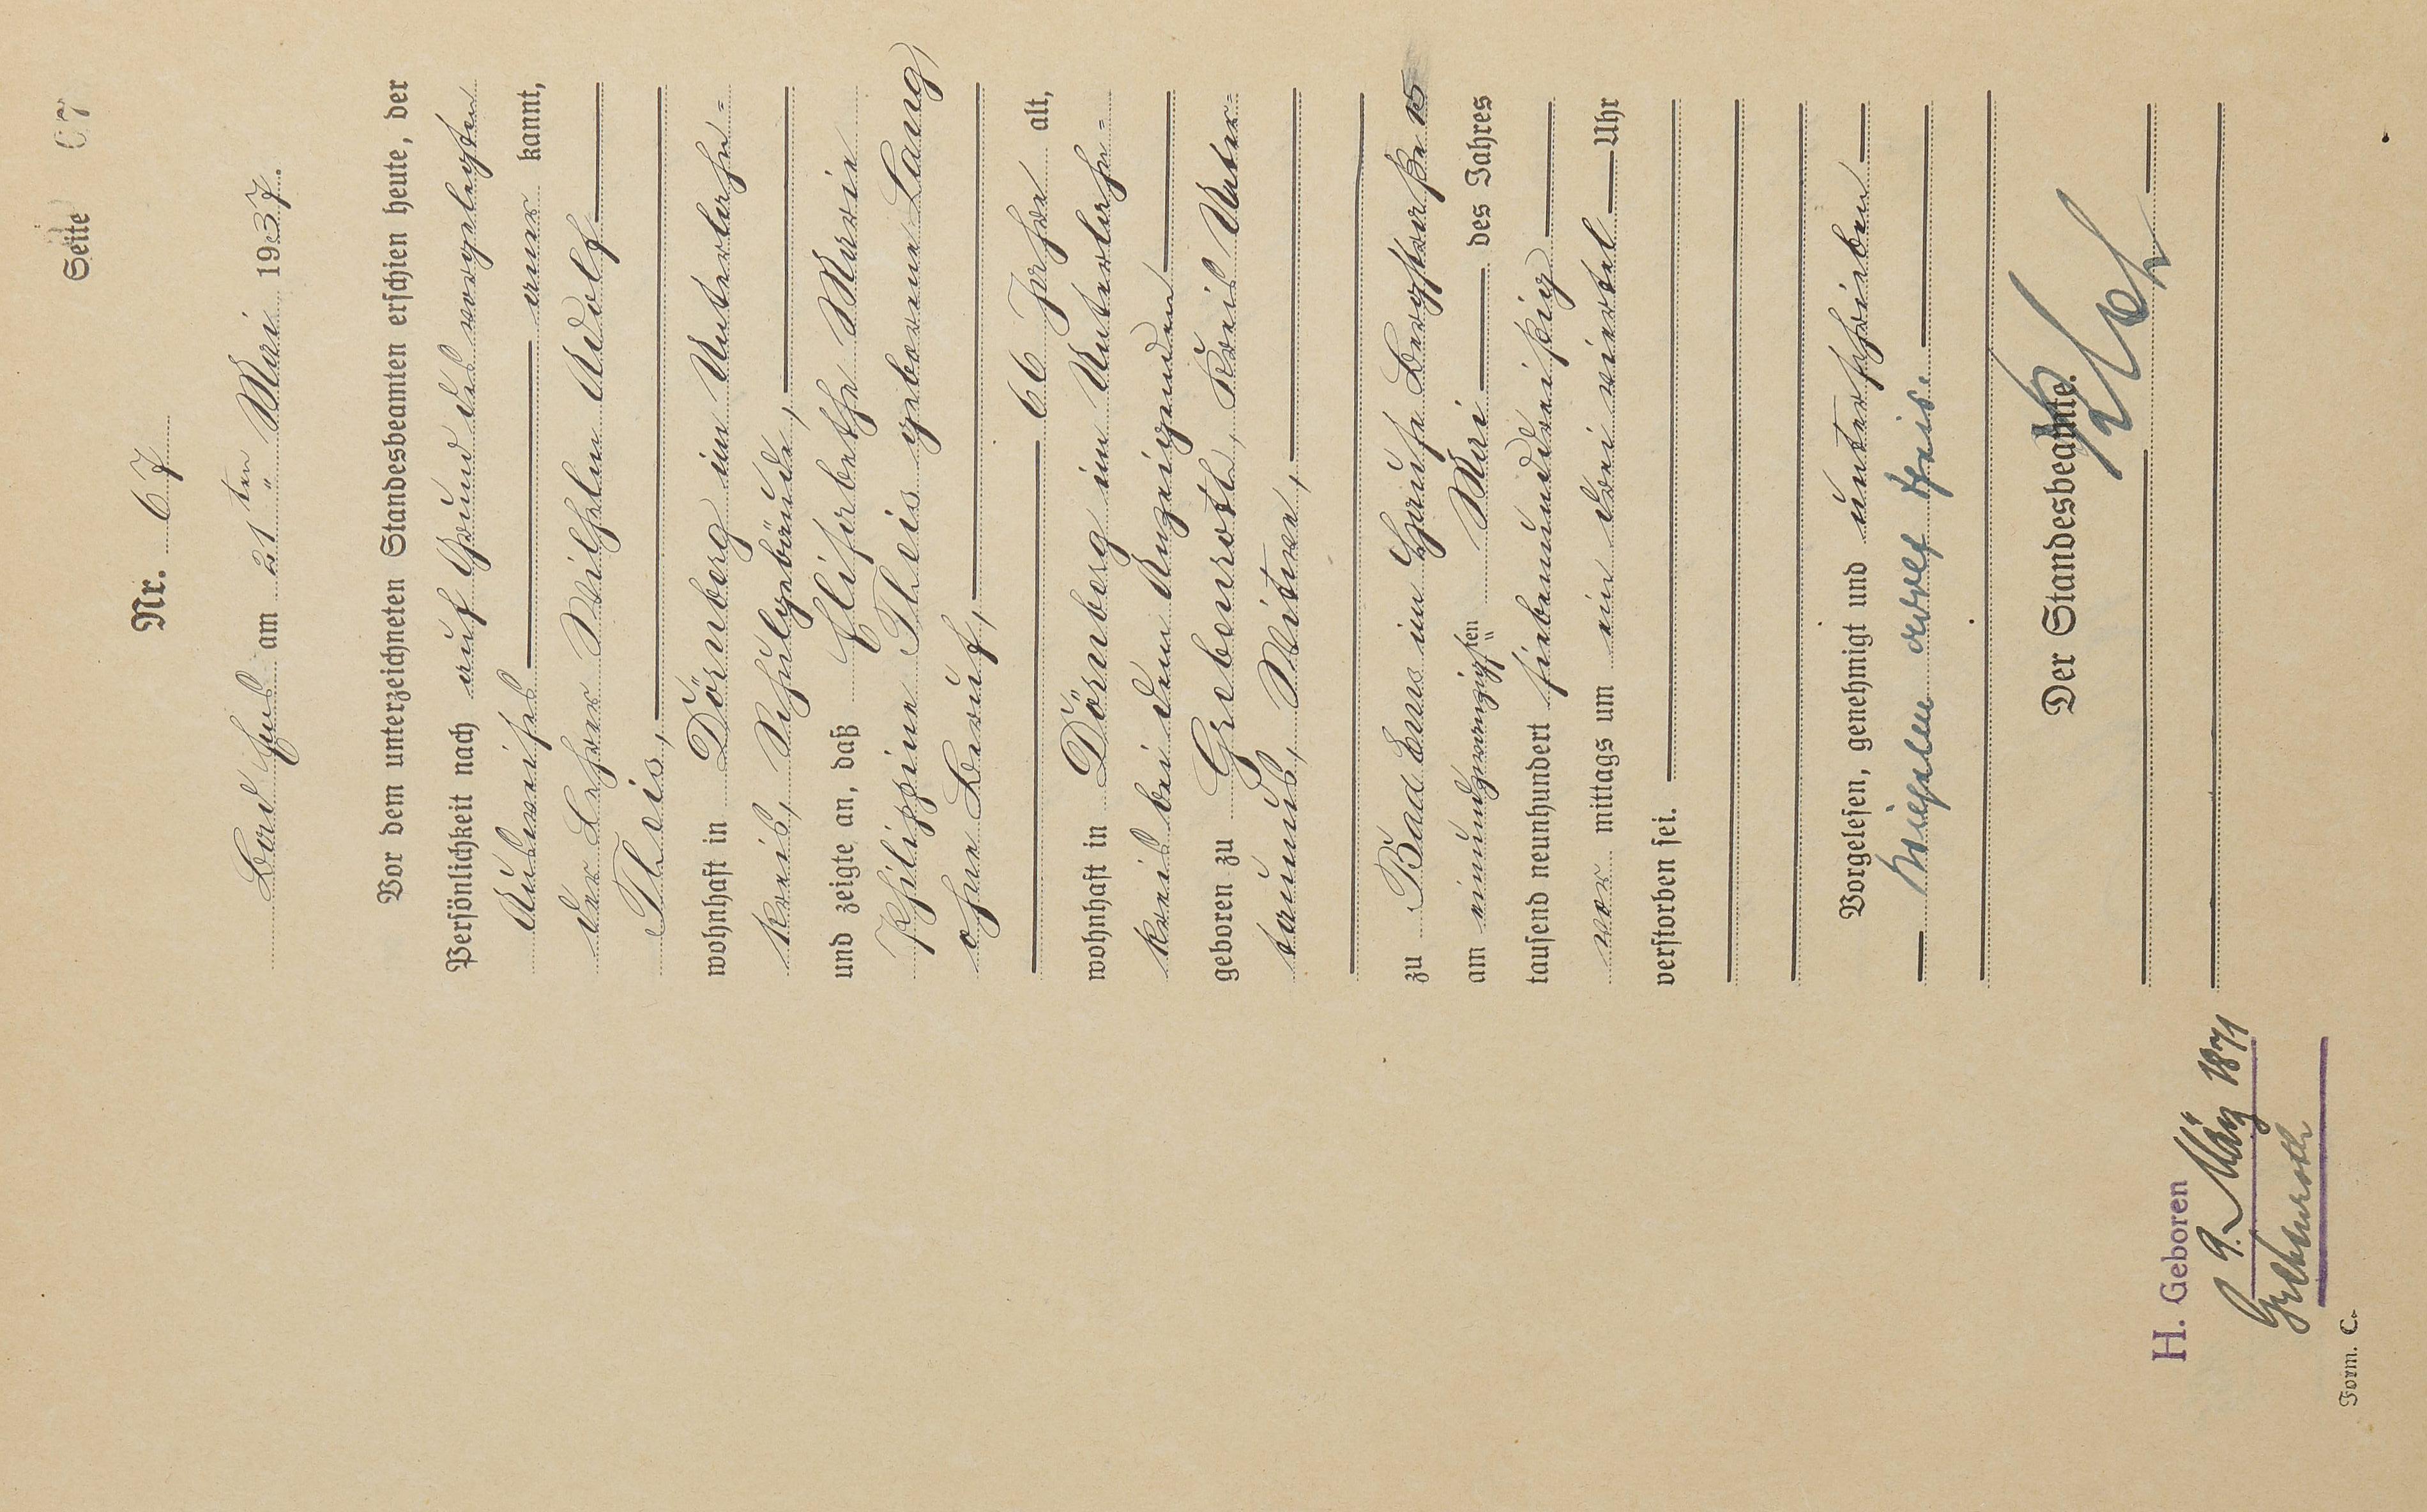 Seite 67
Nr. 67
Bad Ems am 21ten Mai 1937.
Vor dem unterzeichneten Standesbeamten erschien heute, der
Persönlichkeit nach auf Grund des vorgelegten
Ausweises aner kannt,
der Lehrer Wilhelm Adolf
Theis,
wohnhaft in Dörnberg im Unterlahn-
kreis, Schulgebäude,
und zeigte an, daß Elisabethe Marie
Philippine Theis geborene Lang,
ohne Beruf,
66 Jahre alt,
wohnhaft in Dörnberg im Unterlahn-
kreis bei dem Anzeigenden
geboren zu Grebenroth, Kreis Unter-
taunus, Witwe,
zu Bad Ems im Hause Bergstraße 15
am einundzwanzigsten Mai des Jahres
tausend neunhundert siebenunddreißig
vor mittags um ein drei viertel Uhr
verstorben sei.
Vorgelesen, genehmigt und unterschrieben
Wilhelm Adolf Theis.
Der Standesbeamte.
H. Geboren
9. März 1871
Grebenroth
Form. C.